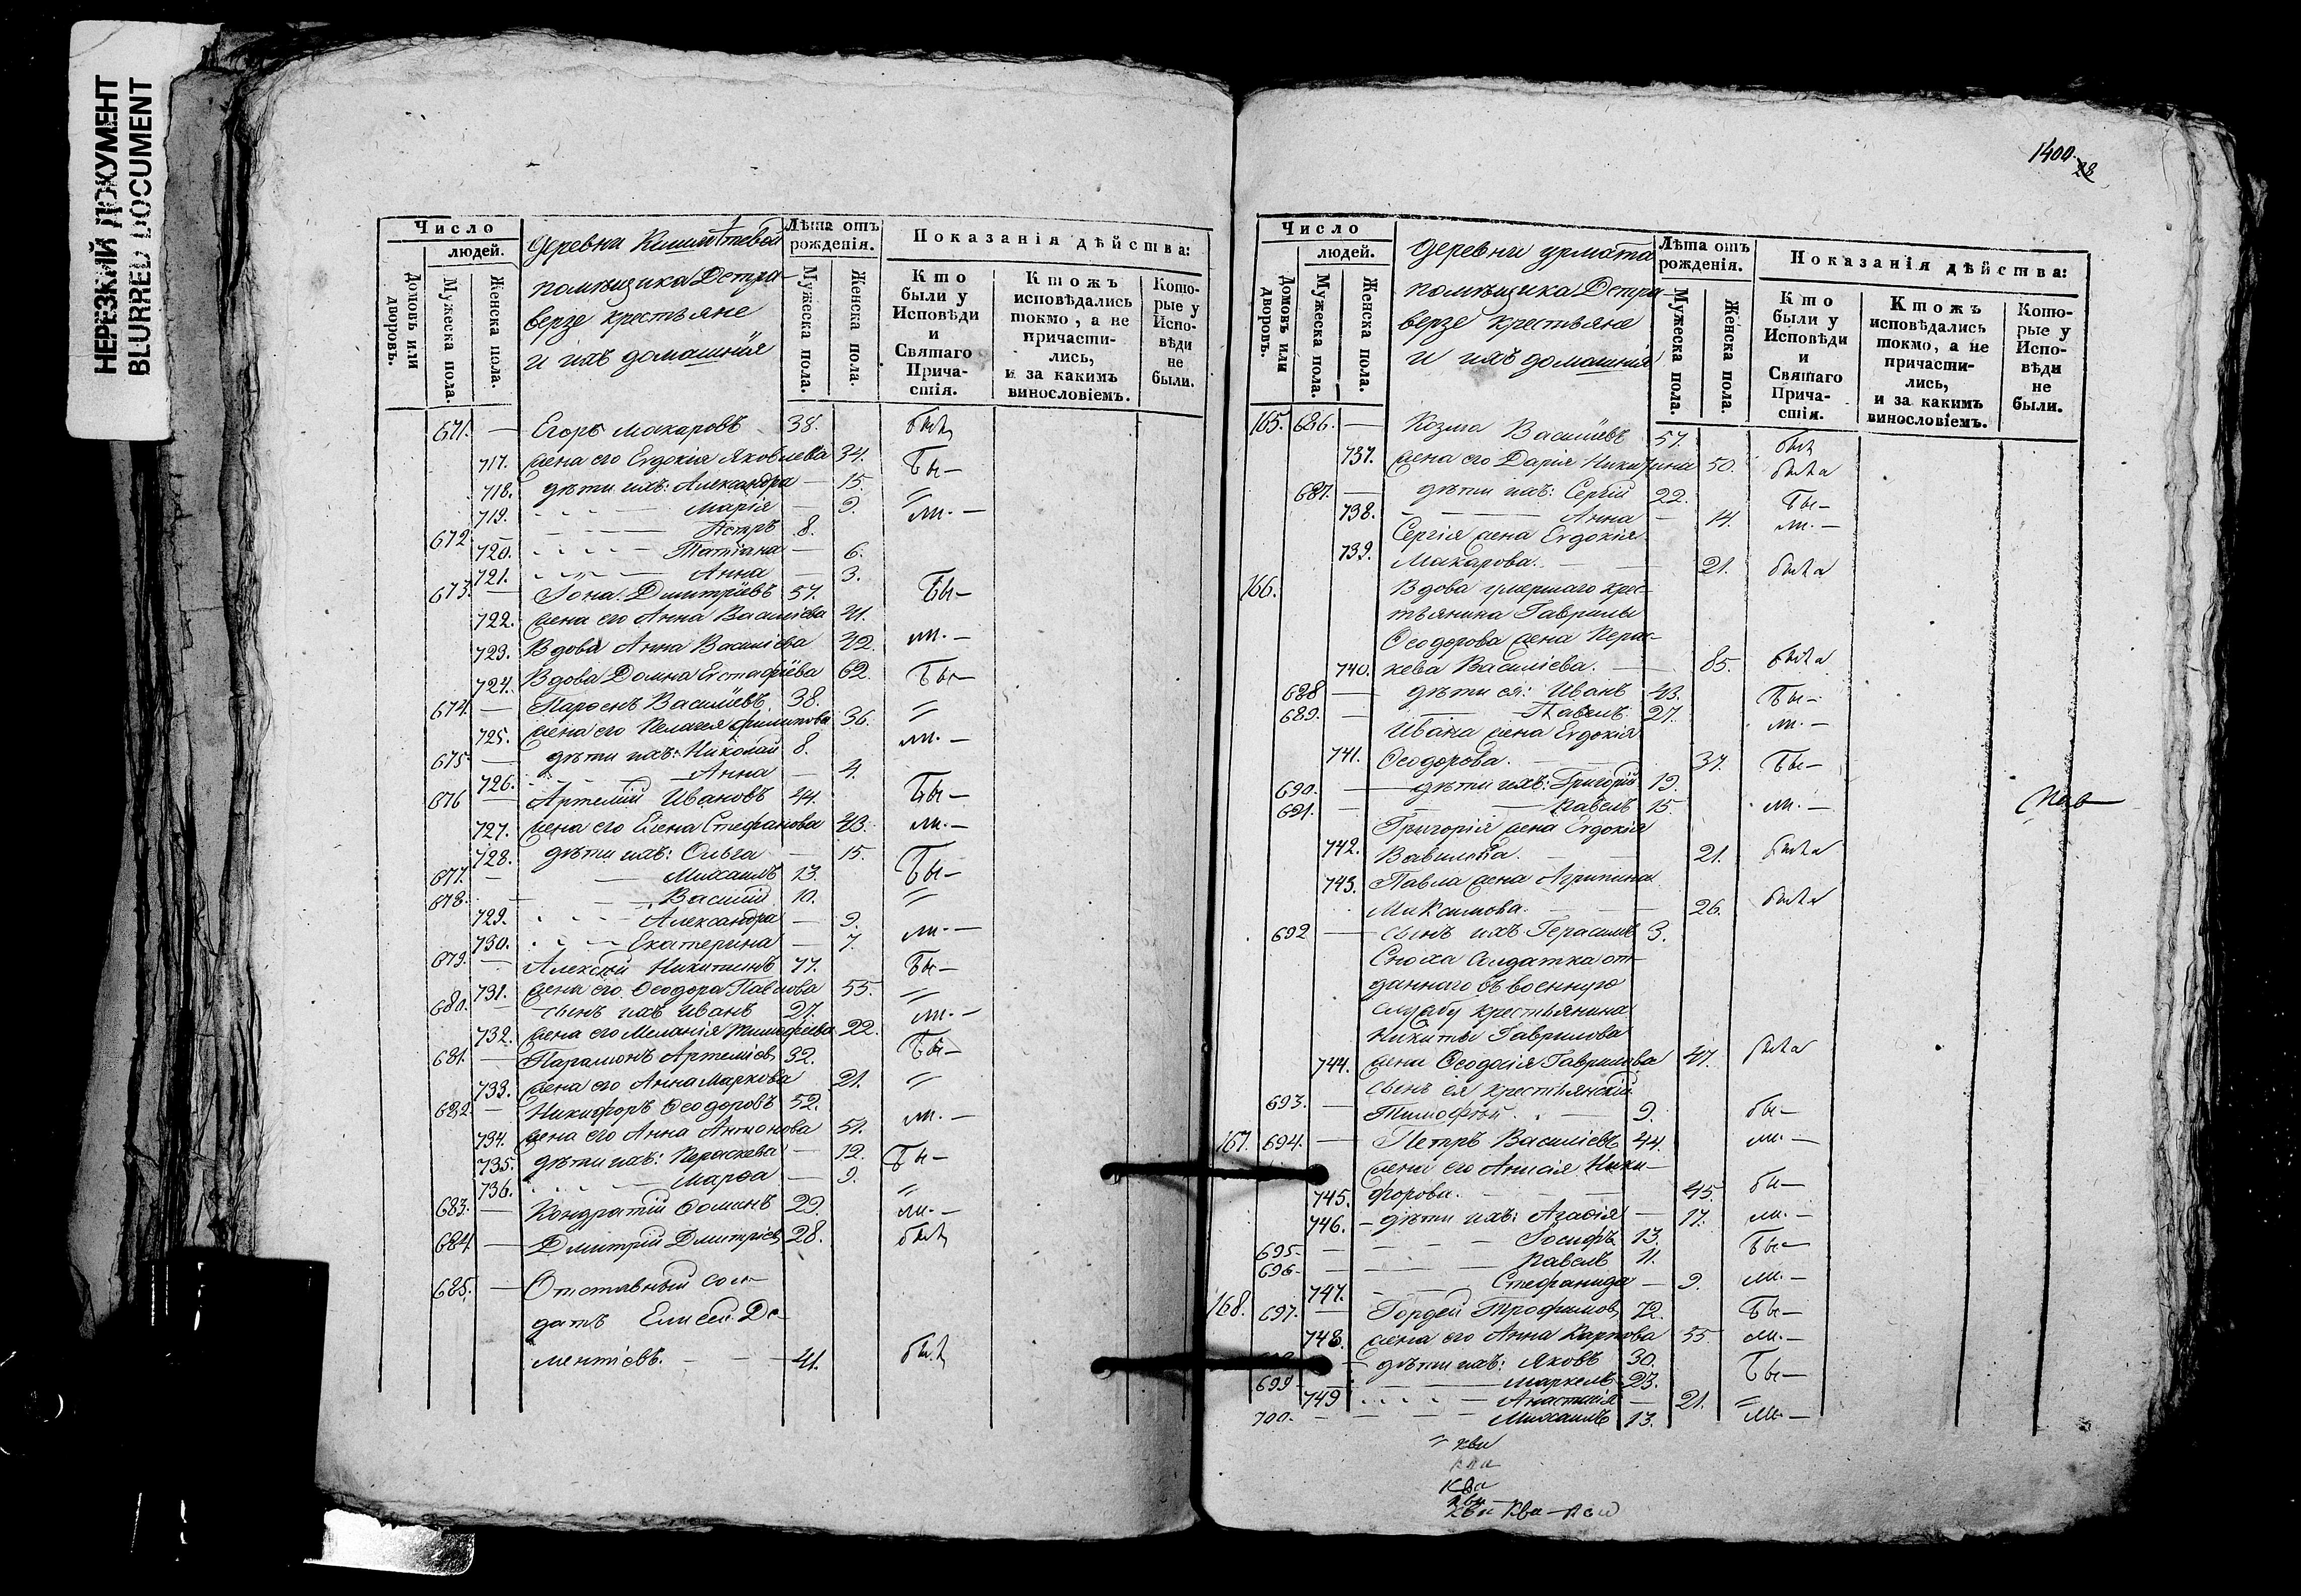 НЕРЕЗКИЙ ДОКУМЕНТ
BLURRED DOCUMENT
Число
людей.
Домовъ или дворовъ.
Мужеска пола.
Женска пола.
деревни
помѣщика Детра-
верзе крестьяне
и ихъ домашнія
Лѣта отъ рожденія.
Мужеска пола.
Женска пола.
Показанія дѣйства:
Кто были у Исповѣди и Святаго Причастія.
Ктожъ исповѣдались токмо, а не причастились, и за какимъ винословіемъ.
Которые у Исповѣди не были.
671. — Егоръ Макаровъ 38. былъ
717. жена его Евдокія Яковлева 34. Бы-
718. дѣти ихъ: Александра — 15. =
719. Марія — 9. ли. —
672 — Петръ 8.
720. Татіана — 6.
721. Анна — 3.
673. — Іона Димитріевъ 57. Бы-
722. жена его Анна Василіева 41.
723. Вдова Анна Василіева 42. ли. —
724. Вдова Домна Евстафіева 62. Бы-
674. — Парѳенъ Василіевъ 38. =
725. жена его Пелагея Филипова 36. ли. —
675 — дѣти ихъ: Николай 8.
726. Анна — 4.
676 — Артемій Ивановъ 44. Бы-
727. жена его Елена Стефанова 43. ли. —
728. дѣти ихъ: Ольга — 15.
677. — Михаилъ 13. Бы-
678. — Василій 10. =
729. Александра — 9.
730. Екатерина — 7. ли. —
679. — Алексѣй Никитинъ 77. Бы-
731. жена его Ѳеодора Павлова 55. =
680. — сынъ ихъ Иванъ 27. ли. —
732. жена его Меланія Тимофеева 22.
681. — Парамонъ Артеміев 32. Бы-
733. жена его Анна Маркова 21. =
682. — Никифоръ Ѳеодоровъ 52.
734. жена его Анна Антонова 51. ли. —
735. дѣти ихъ: Параскева — 12. Бы-
736. Марѳа — 9. =
683. — Кондратій Ѳоминъ 29. ли. —
684. — Дмитрій Дмитріев 28. былъ
685. — Отставный сол-
датъ Елисей Де-
ментіевъ. — 41. былъ
1400.
28
Число
людей.
Домовъ или дворовъ.
Мужеска пола.
Женска пола.
деревни урмата
помѣщика Детра-
верзе крестьяне
и ихъ домашнія
Лѣта отъ рожденія.
Мужеска пола.
Женска пола.
Показанія дѣйства:
Кто были у Исповѣди и Святаго Причастія.
Ктожъ исповѣдались токмо, а не причастились, и за какимъ винословіемъ.
Которые у Исповѣди не были.
165. 686. — Козма Василіевъ 57. былъ
737. жена его Дарія Никитина 50. была
687. — дѣти ихъ: Сергій 22. Бы-
738. Анна — 14. ли. —
Сергія жена Евдокія
739. Макарова. 21. была
166. Вдова умершаго крес-
тьянина Гаврилы
Ѳеодорова жена Парас-
740. кева Василіева. — 85. была
688 — дѣти ея: Иванъ 43. Бы-
689. — Павелъ 27. ли. —
Ивана жена Евдокія
741. Ѳеодорова. 37. Бы-
690. — дѣти ихъ: Григорій 19.
691. — Павелъ 15. ли. —
Григорія жена Евдокія
742. Вавилова. 21. была
743. Павла жена Агрипина
Максимова. 26. была
692 — сынъ ихъ Герасимъ 3.
Сноха Солдатка от-
даннаго въ военную
службу крестьянина
Никиты Гаврилова
744. жена Ѳеодосія Гаврилова 47. была
сынъ ея крестьянскій
693. — Тимофѣй. 9. бы-
167. 694. — Петръ Василіевъ 44. ли. —
жена его Анисія Ники-
745. форова. 45. бы-
746. дѣти ихъ: Агаѳія — 17. ли. —
695. — Іосифъ 13. Бы-
696. — Павелъ 11.
747. Стефанида — 9. ли. —
168. 697. — Гордей Трофимов 72. Бы-
748. жена его Анна Карпова 55 ли. —
дѣти ихъ: Яковъ 30.
699 — Маркелъ 23. Бы-
749 Анастасія — 21. =
700. — Михаилъ 13. ли. —
ква
ква
ква
ква
ква ква